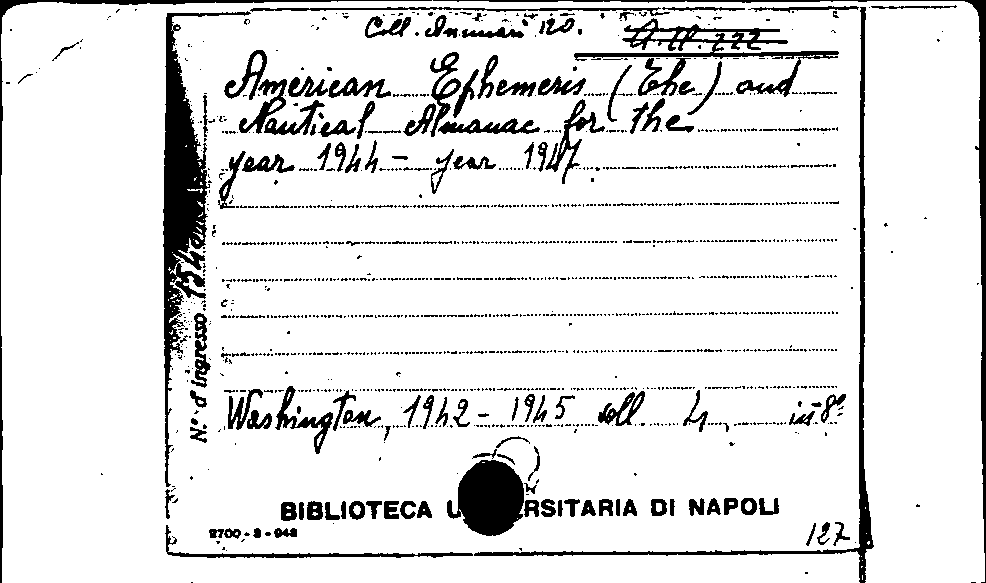 Coll. Annuari 120.
A. II. 222
American Ephemeris (The) and
Nautical Almanac for the
year 1944 – year 1947.
N.° d'ingresso
Washington, 1942 – 1945, voll. 4, in-8°
BIBLIOTECA U RSITARIA DI NAPOLI
2700 - 3 - 948
127